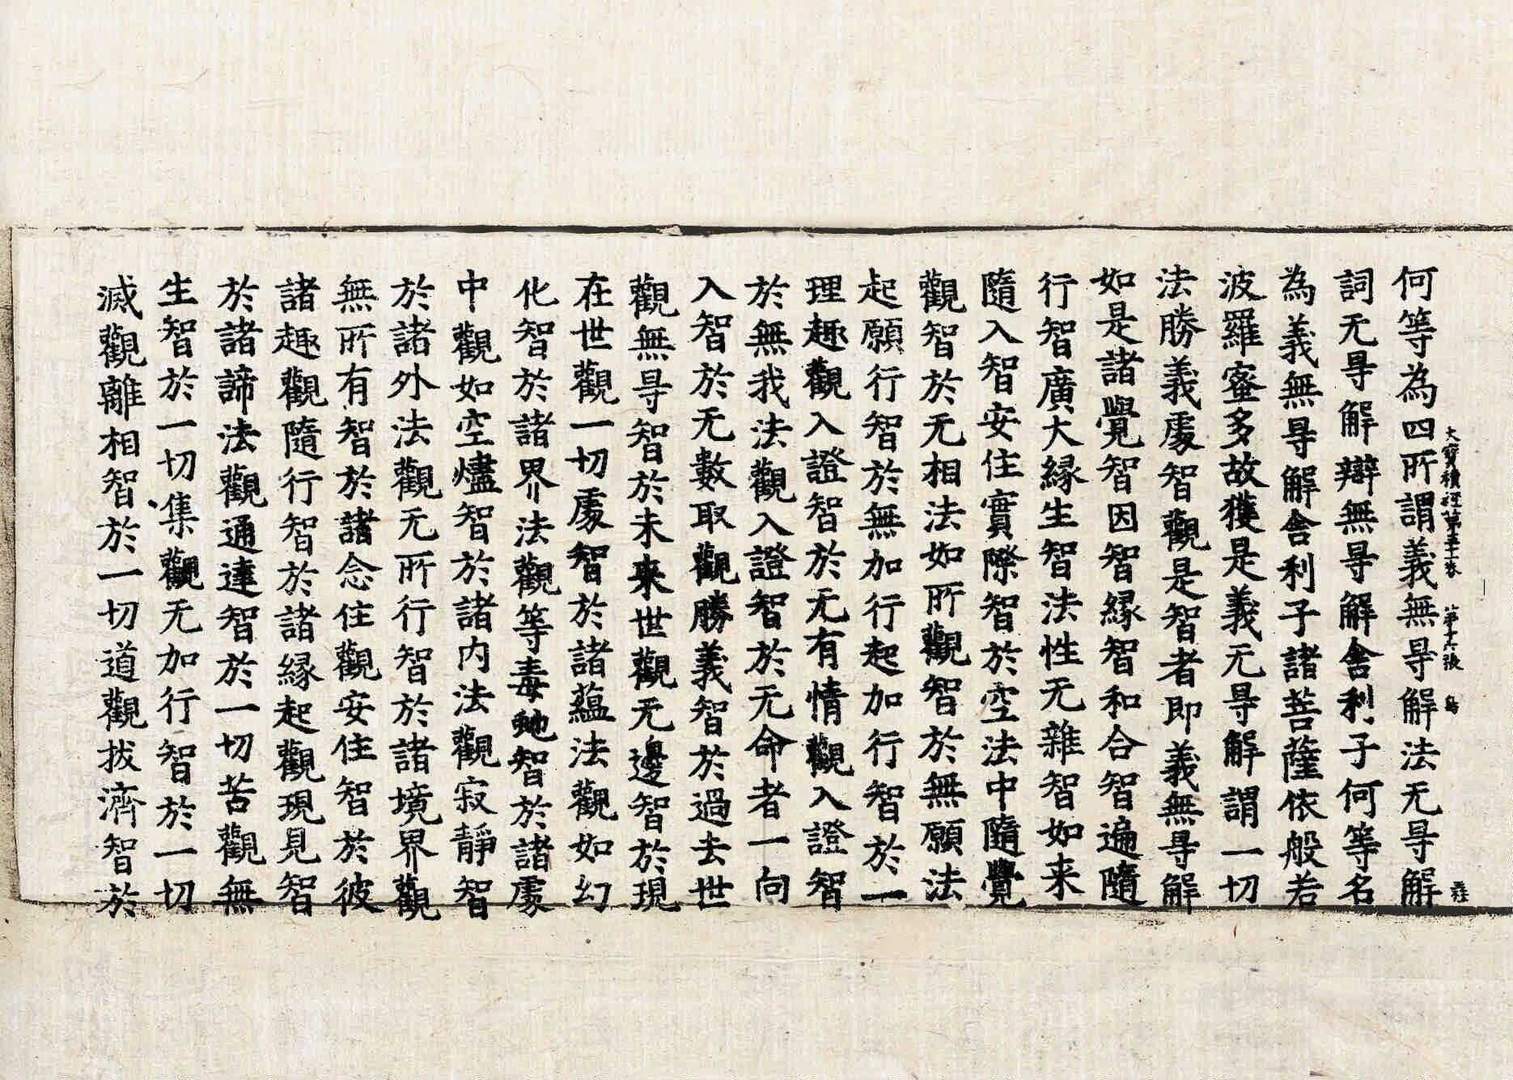 大寶積經第五十一卷 第十六張 鳥
何等為四所謂義無㝵解法无㝵解
詞无㝵解辯無㝵解舍利子何等名
為義無㝵解舍利子諸菩薩依般若
波羅蜜多故獲是義无㝵解謂一切
法勝義處智觀是智者即義無㝵解
如是諸覺智因智緣智和合智遍隨
行智廣大緣生智法性无雜智如来
隨入智安住實際智於空法中隨覺
觀智於无相法如所觀智於無願法
起願行智於無加行起加行智於一
理趣觀入證智於无有情觀入證智
於無我法觀入證智於无命者一向
入智於无數取觀勝義智於過去世
觀無㝵智於未來世觀无邊智於現
在世觀一切處智於諸蘊法觀如幻
化智於諸界法觀等毒虵智於諸處
中觀如空燼智於諸内法觀寂靜智
於諸外法觀无所行智於諸境界觀
無所有智於諸念住觀安住智於彼
諸趣觀隨行智於諸緣起觀現見智
於諸諦法觀通達智於一切苦觀無
生智於一切集觀无加行智於一切
滅觀離相智於一切道觀拔濟智於